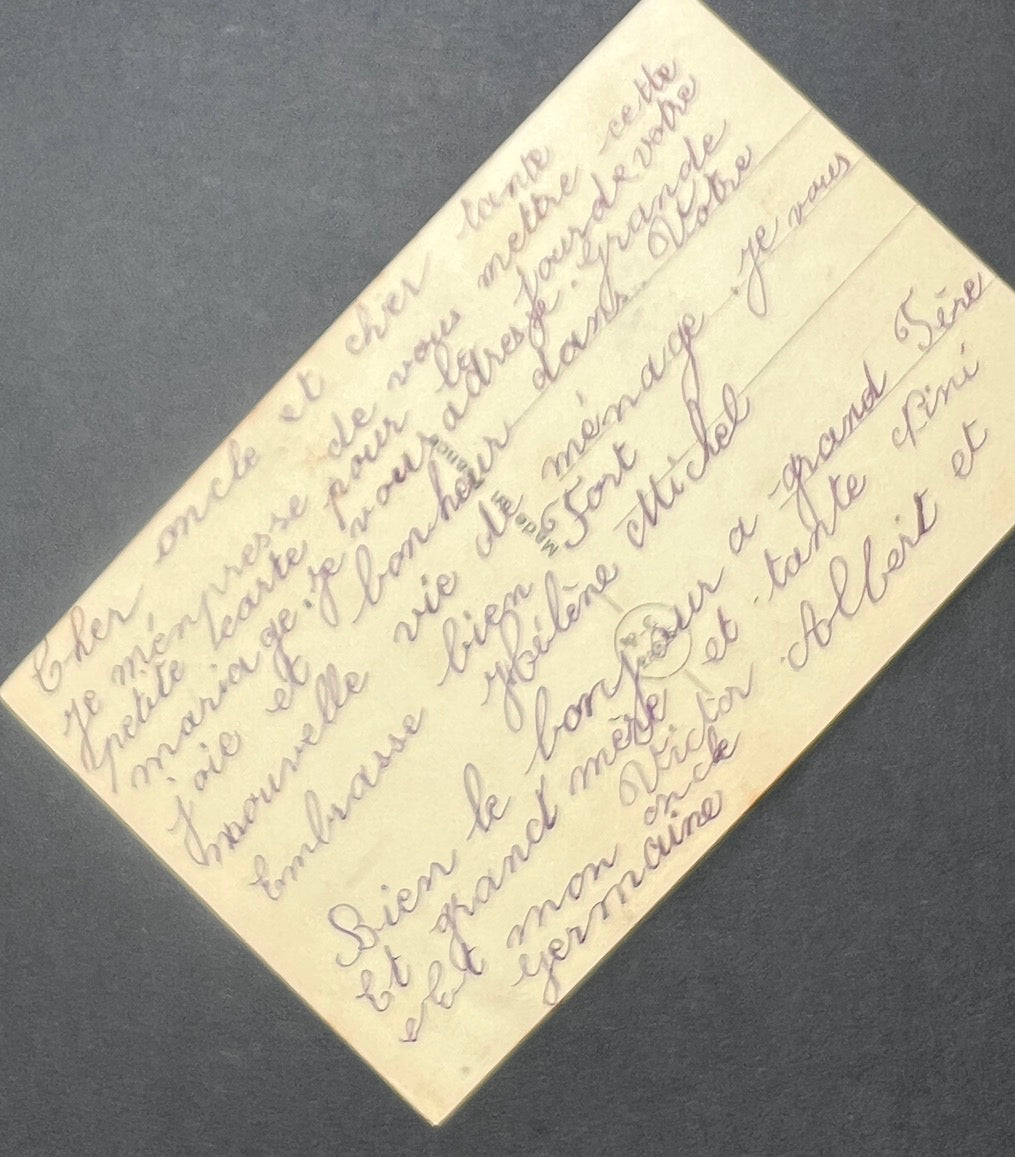 Cher oncle et cher tante
Je m'énpresse de vous mettre cette
petite carte pour le jour de votre
mariage. Je vous adresse grande
Joie et bonheur dans Votre
nouvelle vie de ménage. Je vous
Embrasse bien Fort
Hélène Michel
Bien le bonjour a grand Père
Et grand mère et tante Fini
Et mon Victor Albert et
oncle
germaine
Made in France